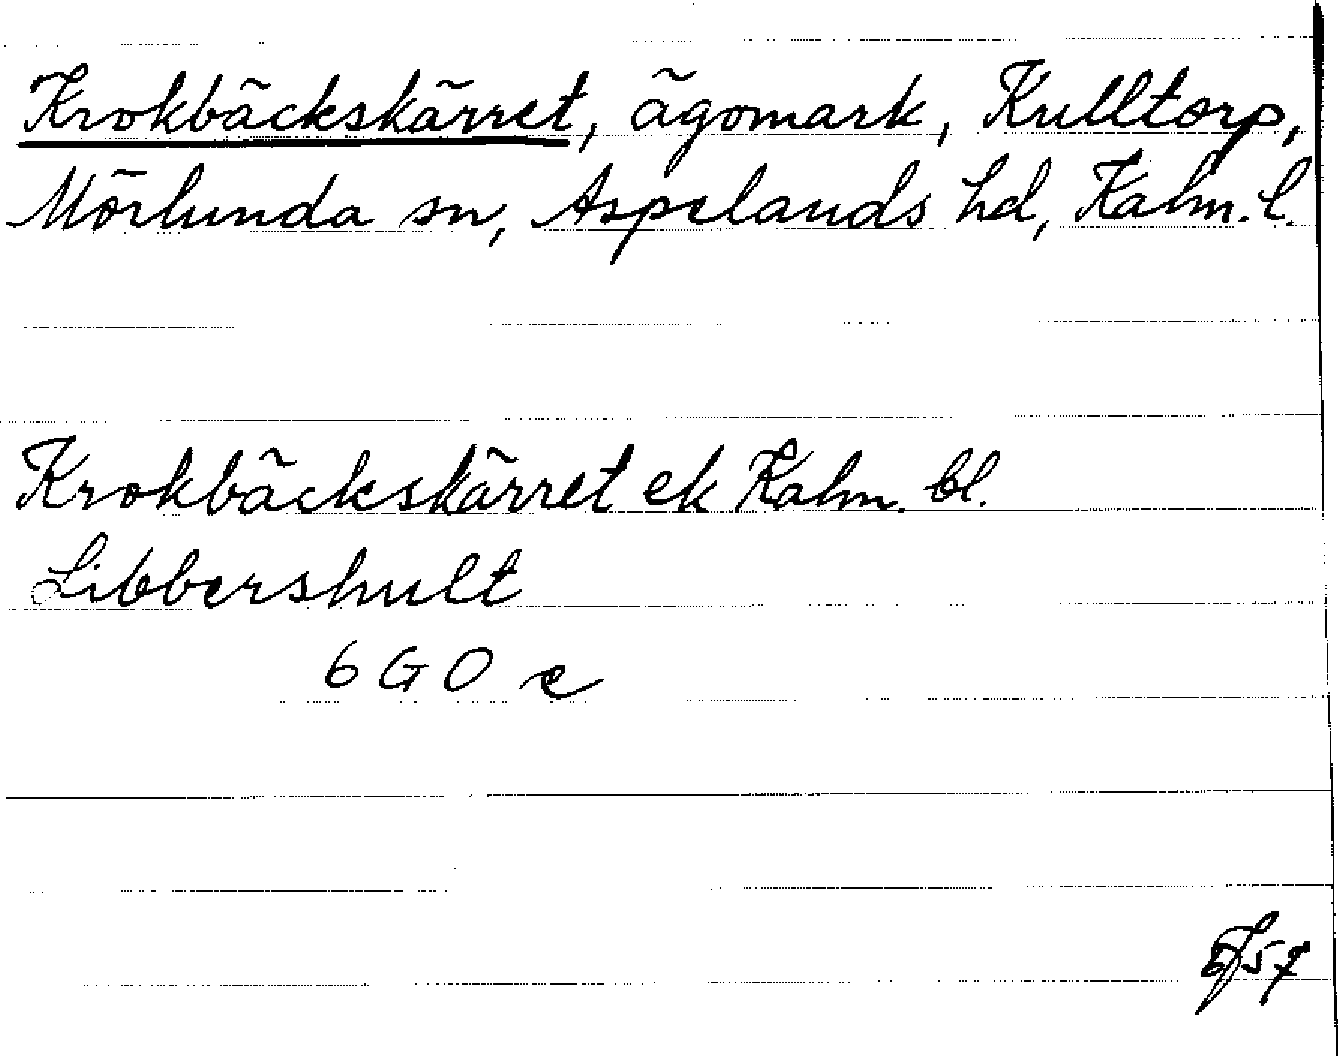 Krokbäckskärret, ägomark, Kulltorp,
Mörlunda sn, Aspelands hd, Kalm. l.
Krokbäckskärret ek Kalm. bl.
Libbershult
6 G O e